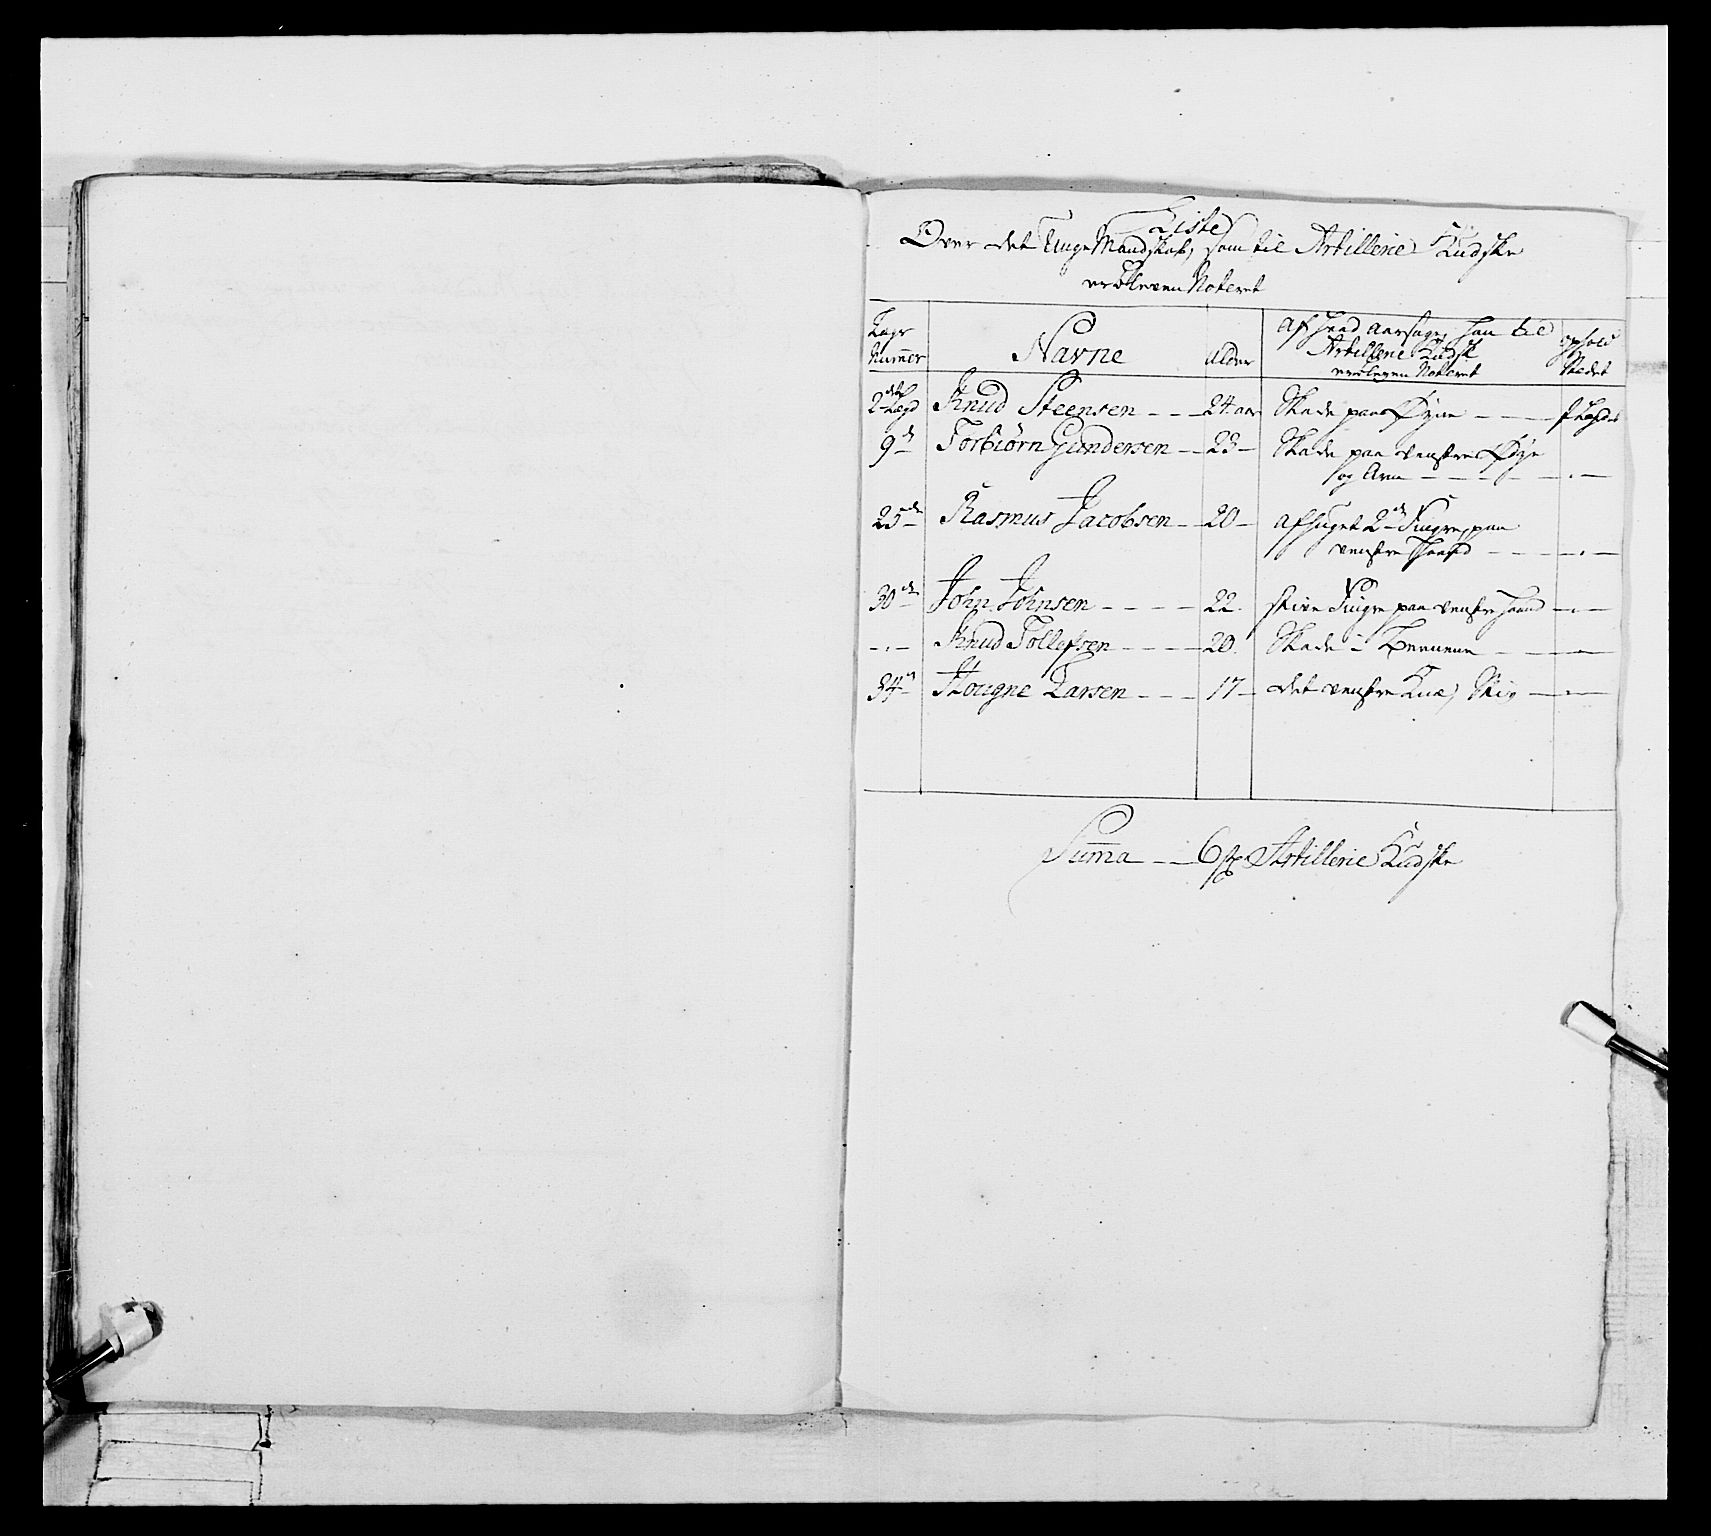 Liste
Over det Unge Mandskab, som til Artillerie Kudske
er bleven Noteret
Lægs Nummer | Navne | Alder | Af hvad Aarsage, han til Artillerie Kudsk er bleven Noteret | Ophold Stædet
2det Lægd | Knud Steensen | 24 aar | Skade paa Øyne
9de | Torbiørn Gundersen | 23 | Skade paa venstre Øye
og Arm
25de | Rasmus Jacobsen | 20 | afhuget 2de Fingre, paa
venstre Haand
30de | John Johnsen | 22. | stive Fingre paa venstre Haand
-.- | Knud Tollefsen | 20. | Skade i Beenene
34de | Hougne Larsen | 17 | det venstre Knæ,
Summa 6 st. Artillerie Kudske